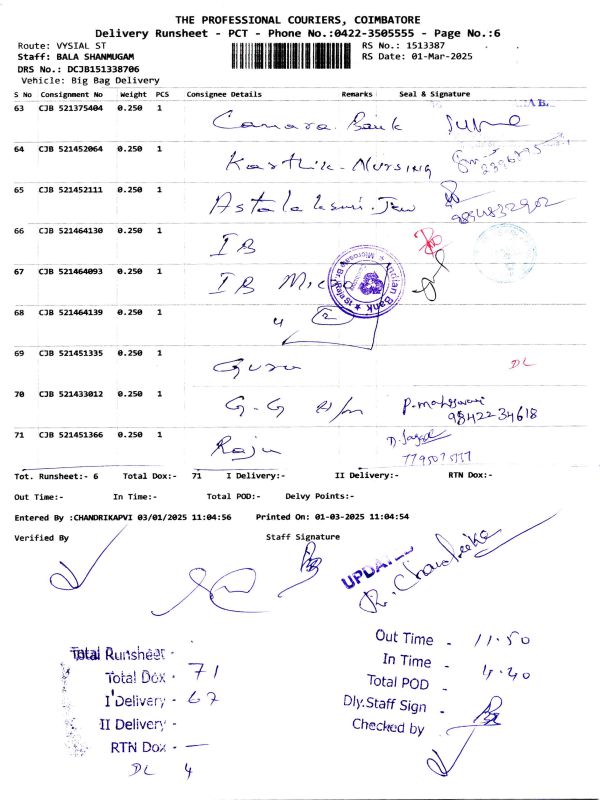 THE PROFESSIONAL COURIERS, COIMBATORE
Delivery Runsheet - PCT - Phone No.:0422-3505555 - Page No.:6
Route: VYSIAL ST
RS No.: 1513387
Staff: BALA SHANMUGAM
RS Date: 01-Mar-2025
DRS No.: DCJB151338706
Vehicle: Big Bag Delivery
S No Consignment No Weight PCS Consignee Details Remarks Seal & Signature
63 CJB 521375404 0.250 1 Canara Bank
64 CJB 521452064 0.250 1 Karthik-Nursing
65 CJB 521452111 0.250 1 9894832902
66 CJB 521464130 0.250 1 IB
67 CJB 521464093 0.250 1 IB Micro
Indian Bank
68 CJB 521464139 0.250 1 " 2
69 CJB 521451335 0.250 1 Guru DL
70 CJB 521433012 0.250 1 G.G P.maheswari
9842234618
71 CJB 521451366 0.250 1 Raju
Tot. Runsheet:- 6 Total Dox:- 71 I Delivery:- II Delivery:- RTN Dox:-
Out Time:- In Time:- Total POD:- Delvy Points:-
Entered By :CHANDRIKAPVI 03/01/2025 11:04:56 Printed On: 01-03-2025 11:04:54
Verified By Staff Signature
UPDATED
R. Chandrika
Total Runsheet -
Total Dox - 71
I Delivery - 67
II Delivery -
RTN Dox - —
DL 4
Out Time - 11.50
In Time - 4.40
Total POD -
Dly.Staff Sign -
Checked by